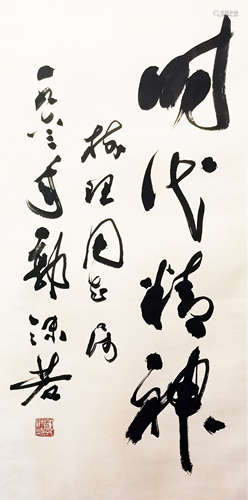 时代精神
理同志属
一九六三年郭沫若